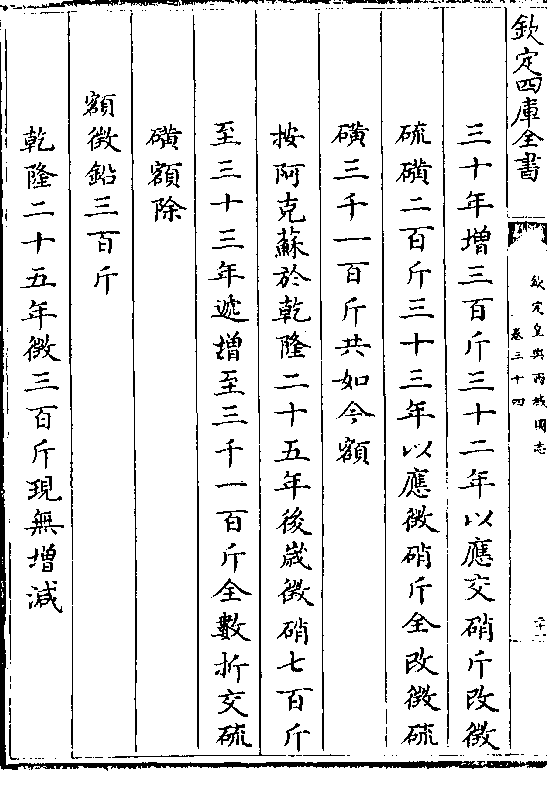 欽定四庫全書
欽定皇輿西域圖志
卷三十四
三十年增三百斤三十二年以應交硝斤改徴
硫磺二百斤三十三年以應徴硝斤全改徴硫
磺三千一百斤共如今額
按阿克蘇於乾隆二十五年後歲徴硝七百斤
至三十三年遞增至三千一百斤全數折交硫
磺額除
額徴鉛三百斤
乾隆二十五年徴三百斤現無增減